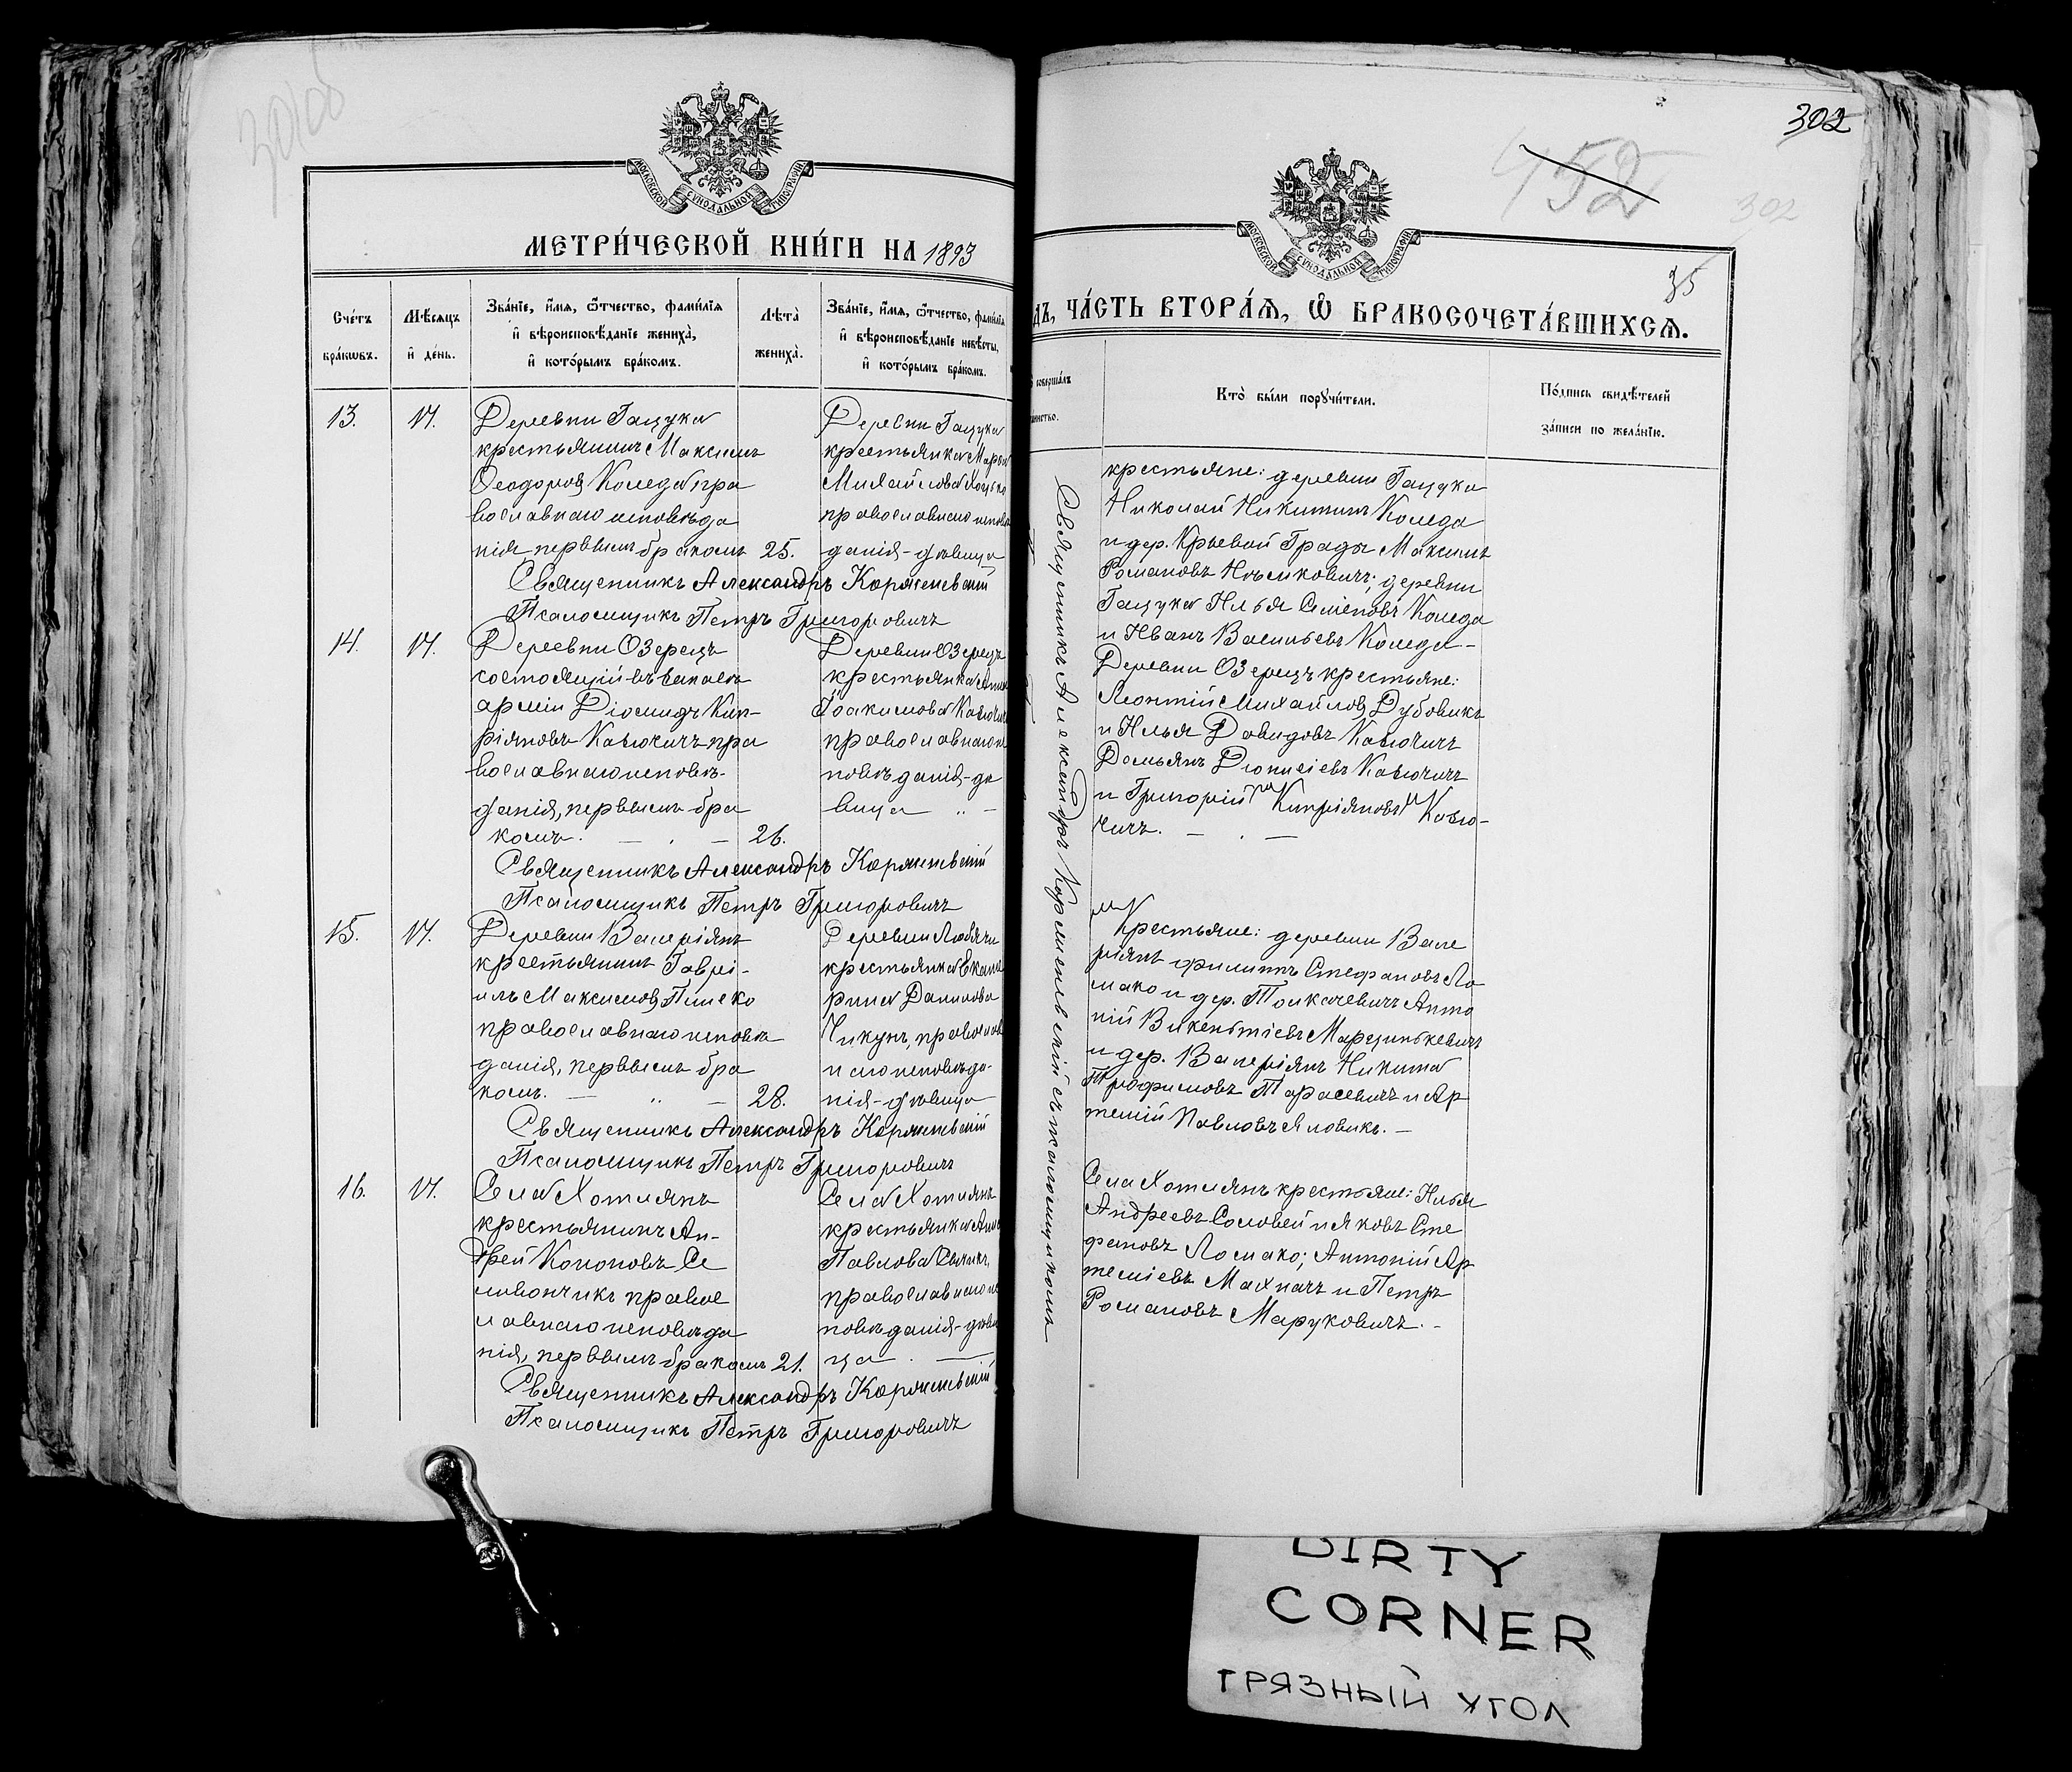 302
452
302
35
МОСКОВСКОЙ СУНОДАЛЬНОЙ ТИПОГРАФИИ
МЕТРИ́ЧЕСКОЙ КНИ́ГИ НА 1893
Сче́тъ бра́кѡвъ.
Мѣ́сяцъ и҆ де́нь.
Зва́нїе, и҆́мя, ѻ҆́тчество, фами́лїя
и҆ вѣроисповѣ́данїе жениха̀,
и҆ кото́рымъ бра́комъ.
Лѣта̀
жениха̀.
Зва́нїе, и҆́мя, ѻ҆́тчество, фами́лїя
и҆ вѣроисповѣ́данїе невѣ́сты,
и҆ кото́рымъ бра́комъ.
13. 17.
Деревни Гацука
крестьянинъ Максимъ
Ѳеодоровъ Коледа пра
вославнаго исповѣда
нія первымъ бракомъ 25.
Деревни Гацука
крестьянка Марья
Михайлова
православнаго испов
данія - дѣвица
Священникъ Александръ
Псаломщикъ Петръ Григоровичъ
14. 17.
Деревни Озерецъ
состоящій въ запасѣ
арміи Діомидъ Кип-
ріяновъ Кавючичъ пра
вославнаго исповѣ-
данія, первымъ бра
комъ. — . — 26.
Деревни Озерецъ
крестьянка
Іоакимова
православнаго и
повѣданія - дѣ
вица „ —
Священникъ Александръ
Псаломщикъ Петръ Григоровичъ
15. 17.
Деревни Валеріянъ
крестьянинъ Гаврі-
илъ Максимовъ
православнаго исповѣ
данія, первымъ бра
комъ. — „ — 28.
Деревни Любячи
крестьянка Екате
рина Данилова
Чикунъ, православ
наго исповѣда-
нія - дѣвица
Священникъ Александръ
Псаломщикъ Петръ Григоровичъ
16. 17.
Села Хотлянъ
крестьянинъ Ан-
дрей Кононовъ Се
ливончикъ правос
лавнаго исповѣда
нія, первымъ бракомъ 21.
Села Хотлянъ
крестьянка
Павлова
православнаго ис
повѣданія - дѣви
ца . —
Священникъ Александръ
Псаломщикъ Петръ Григоровичъ
МОСКОВСКОЙ СУНОДАЛЬНОЙ ТИПОГРАФИИ
ДЪ, ЧА́СТЬ ВТОРА́Я, Ѡ҆ БРАКОСОЧЕТА́ВШИХСЯ.
соверша́лъ
та́инство.
Кто̀ бы́ли порꙋчи́тели.
По́дпись свидѣ́телей
за́писи по жела́нїю.
Священникъ Александръ съ псаломщикомъ
крестьяне: деревни Гацука
Николай Никитинъ Коледа
и дер. Крывой Грады Максимъ
Романовъ; деревни
Гацука Илья Семеновъ Коледа
и Иванъ Васильевъ Коледа -
Деревни Озерецъ крестьяне:
Леонтій Михайловъ Дубовикъ
и Илья Давидовъ Кавючичъ
Демьянъ Діонисіевъ Кавючичъ
и Григорій Кипріяновъ Кавю-
чичъ. — . —
Крестьяне: деревни Вале
ріянъ Филиппъ Стефановъ Ло
мако и дер. Толкачевичъ Анто
ній Викентіевъ Марцинькевичъ
и дер. Валеріянъ Никита
Трофимовъ Тарасевичъ и Ар
темій Павловъ Яловикъ. —
Села Хотлянъ крестьяне: Илья
Андреевъ Соловей и Яковъ Сте
фановъ Ломако; Антоній Ар
теміевъ Махначъ и Петръ
Романовъ Маруковичъ. -
DIRTY
CORNER
ГРЯЗНЫЙ УГОЛ